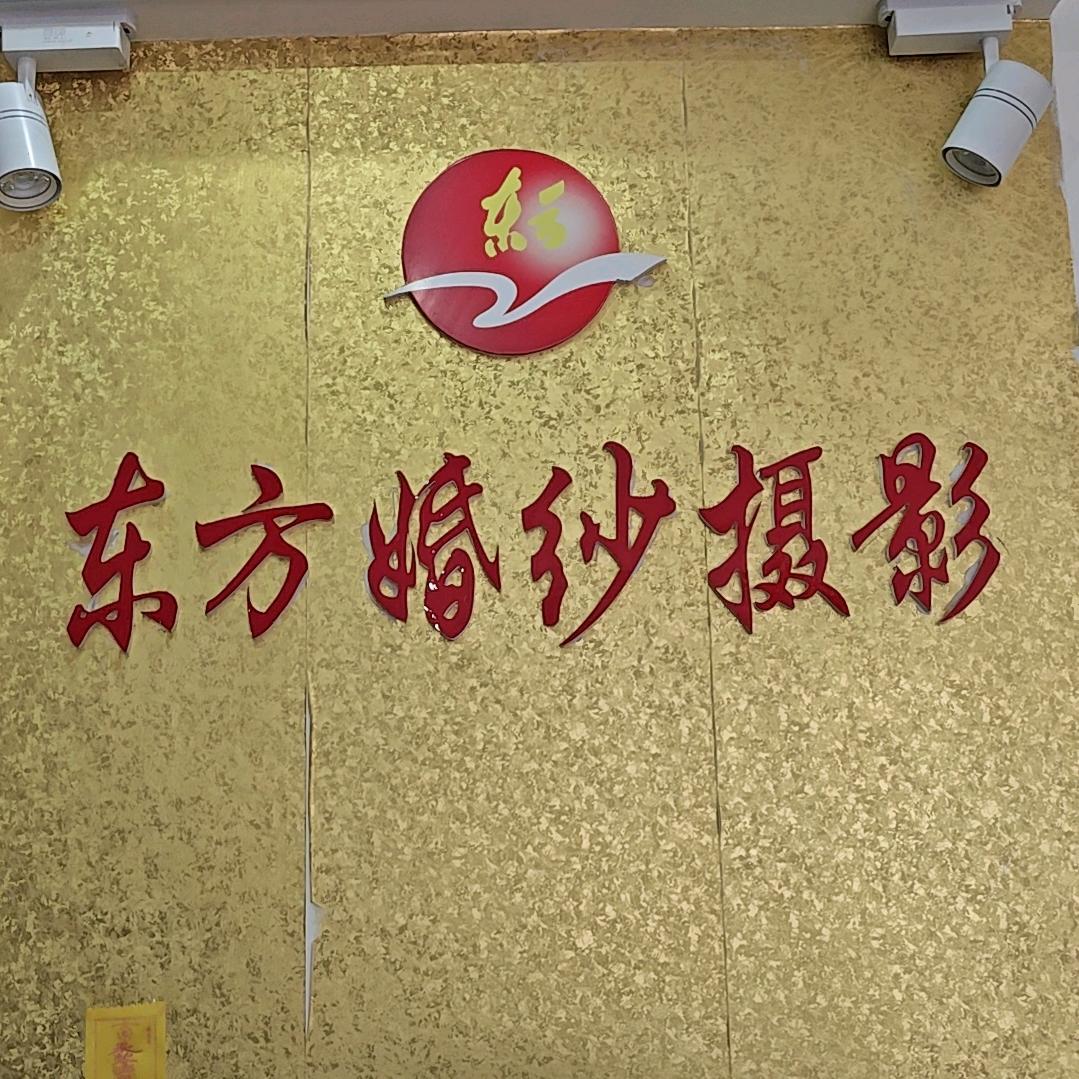 东方
东方婚纱摄影